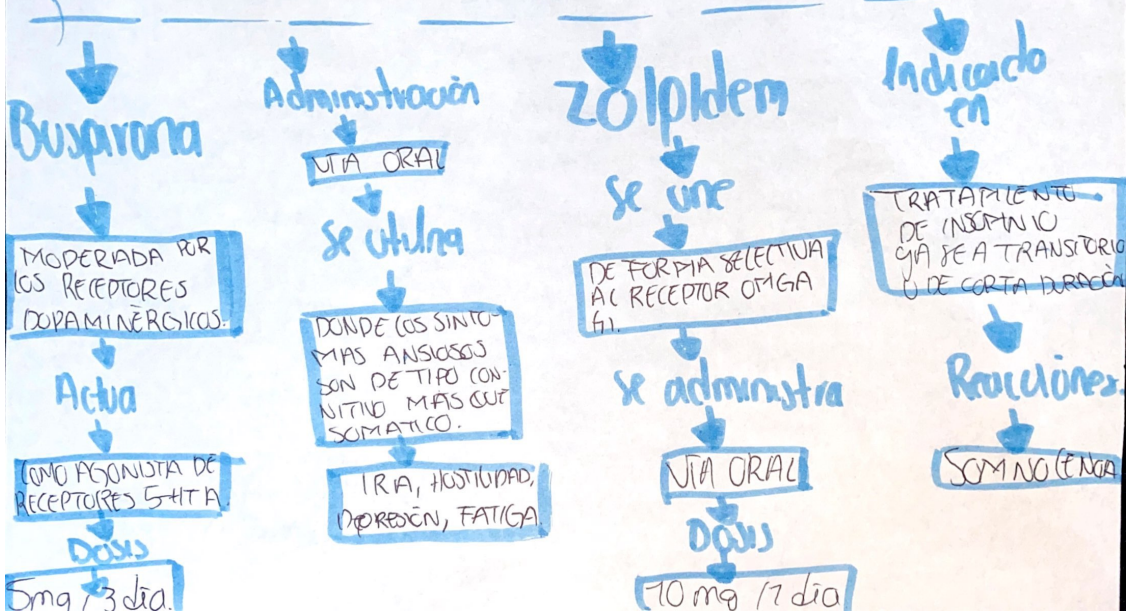 Busparona
MODERADA POR
LOS RECEPTORES
DOPAMINÈRGICOS.
Actua
COMO AGONISTA DE
RECEPTORES 5-HT A.
Dosis
5mg / 3 dia.
Administraciòn
VIA ORAL
Se utiliza
DONDE LOS SINTO-
MAS ANSIOSOS
SON DE TIPO COG-
NITIVO MAS QUE
SOMATICO.
IRA, HOSTILIDAD,
DEPRESIÒN, FATIGA.
Zolpidem
Se une
DE FORMA SELECTIVA
AL RECEPTOR OMGA
Se administra
VIA ORAL
Dosis
10 mg /1 dia
Indicado
en
TRATAMIENTO
DE INSOMNIO
YA SEA TRANSITORIO
O DE CORTA DURACIÒN
Reacciónes.
SOMNOLENCIA